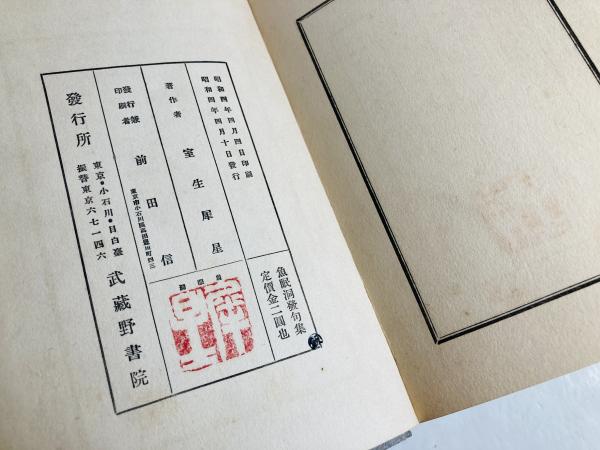 魚眠洞發句集
定價金二圓也
昭和四年四月四日印刷
昭和四年四月十日發行
著作者 室生犀星
發行兼印刷者 前田信
發行所 東京・小石川・目白臺 武藏野書院
振替東京六七一四六